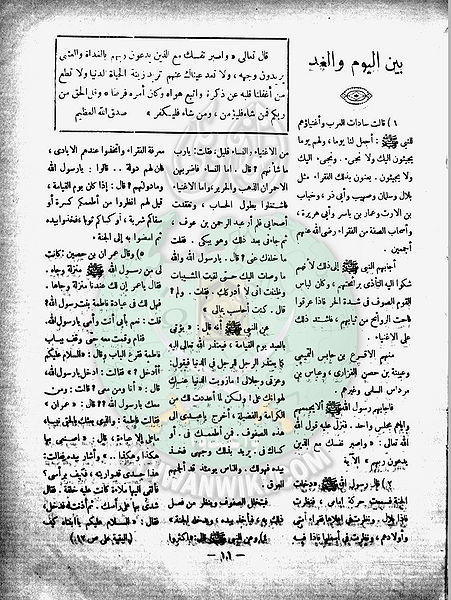 بين اليوم والغد
قال تعالى « واصبر نفسك مع الذين يدعون ربهم بالغداة والعشى
يريدون وجهه ، ولا تعد عيناك عنهم تريد زينة الحياة الدنيا ولا تطع
من أغفلنا قلبه عن ذكرنا واتبع هواه وكان أمره فرطا • وقل الحق من
ربكم فمن شاء فليؤمن ، ومن شاء فليكفر » صدق الله العظيم
١) قالت سادات العرب وأغنياؤهم
للنبي ﷺ : أجعل لنا يوما ، ولهم يوما
يجيئون اليك ولا نجىء . ونجىء اليك
ولا يجيئون . يعنون بذلك الفقراء مثل
بلال وسلمان وصهيب وأبى ذر ، وخباب
بن الارت وعمار بن ياسر وأبى هريرة ،
وأصحاب الصفة من الفقراء رضى الله عنهم
أجمعين .
أجابهم النبي ﷺ إلى ذلك لأنهم
شكوا اليه التأذى برائحتهم ، وكان لباس
القوم الصوف فى شدة الحر فاذا عرقوا
فاحت الروائح من ثيابهم ، فاشتد ذلك
على الأغنياء .
منهم الاقرع بن حابس التميمى
وعيينة بن حصن الفزارى ، وعباس بن
مرداس السلمى وغيرهم .
فأجابهم رسول الله ﷺ ألا يجمعهم
واياهم مجلس واحد . فنزل عليه قول الله
تعالى : « واصبر نفسك مع الذين
يدعون ربهم » الآية
٢) قال رسول الله ﷺ دخلت
الجنة فسمعت حركة أمامى ، فنظرت
فاذا بلال . ونظرت فى أعلاها فقراء أمتى
وأولادهم ، ونظرت فى أسفلها فاذا فيه
من الاغنياء والنساء قليل ، فقلت : يارب
ما شأنهم ؟ قال : أما النساء فأضر بهن
الأحمران الذهب والحرير ، وأما الأغنياء
فاشتغلوا بطول الحساب . وتفقدت
أصحابى فلم أر عبد الرحمن بن عوف .
ثم جاءنى بعد ذلك وهو يبكى . فقلت
ما خلفك عنى ؟ قال : يارسول الله والله
ما وصلت اليك حتى لقيت المشيبات
وظننت أنى لا أدركك . فقلت . ولم ؟
قال . كنت أحاسب بمالى »
عن النبي ﷺ أنه قال : « يؤتى
بالعبد يوم القيامة ، فيعتذر الله تعالى اليه
كما يعتذر الرجل للرجل فى الدنيا فيقول :
وعزتى وجلالى ! مازويت الدنيا عنك
لهوانك على ! ولكن لما أعددت لك من
الكرامة والفضيلة ، أخرج ياعبدى الى
هذه الصفوف . فمن أطعمك فى . أو
كساك فى . يريد بذلك وجهى فخذ
بيده فهو لك . والناس يومئذ قد ألجمهم
العرق .
فيتخلل الصفوف وينظر من فعل
ذلك به ، فيأخذ بيده ، ويدخله الجنة »
٤) وعن النبي ﷺ قال : « أكثروا
معرفة الفقراء واتخذوا عندهم الايادى ،
فان لهم دولة . قالوا : يارسول الله
وما دولتهم ؟ قال : إذا كان يوم القيامة ،
قيل لهم انظروا من أطعمكم كسرة أو
سقاكم شربة ، أو كساكم ثوبا ، فخذوا بيده
ثم امضوا به إلى الجنة .
٥) وقال عمران بن حصين : كانت
لى من رسول الله ﷺ منزلة وجاه .
فقال ياعمران إن لك عندنا منزلة وجاها .
فهل لك فى عيادة فاطمة بنت رسول الله ؟
قلت : نعم بأبى أنت وأمى يارسول الله .
فقام وقمت معه حتى وقف بباب
فاطمة فقرع الباب وقال : « السلام عليكم
أأدخل ؟ » فقالت : أدخل يارسول الله .
قال : « أنا ومن معى ؟ » قالت : ومن
معك يارسول الله ؟ ؟ قال : « عمران »
فقالت فاطمة : والذى بعثك بالحق نبيا
ما على إلا عباءة . قال : « اصنعى بها
هكذا وهكذا .. » وأشار بيده فقالت :
هذا جسدى قد واريته ، فكيف برأسى ؟
فألقى اليها ملاءة كانت عليه خلقة . فقال
شدى بها على رأسك . ثم أذنت له فدخل ،
فقال : « السلام عليكم يا ابنتاه كيف
( البقية على ص ١٣ )
— ١١ —
WANWIKI.COM